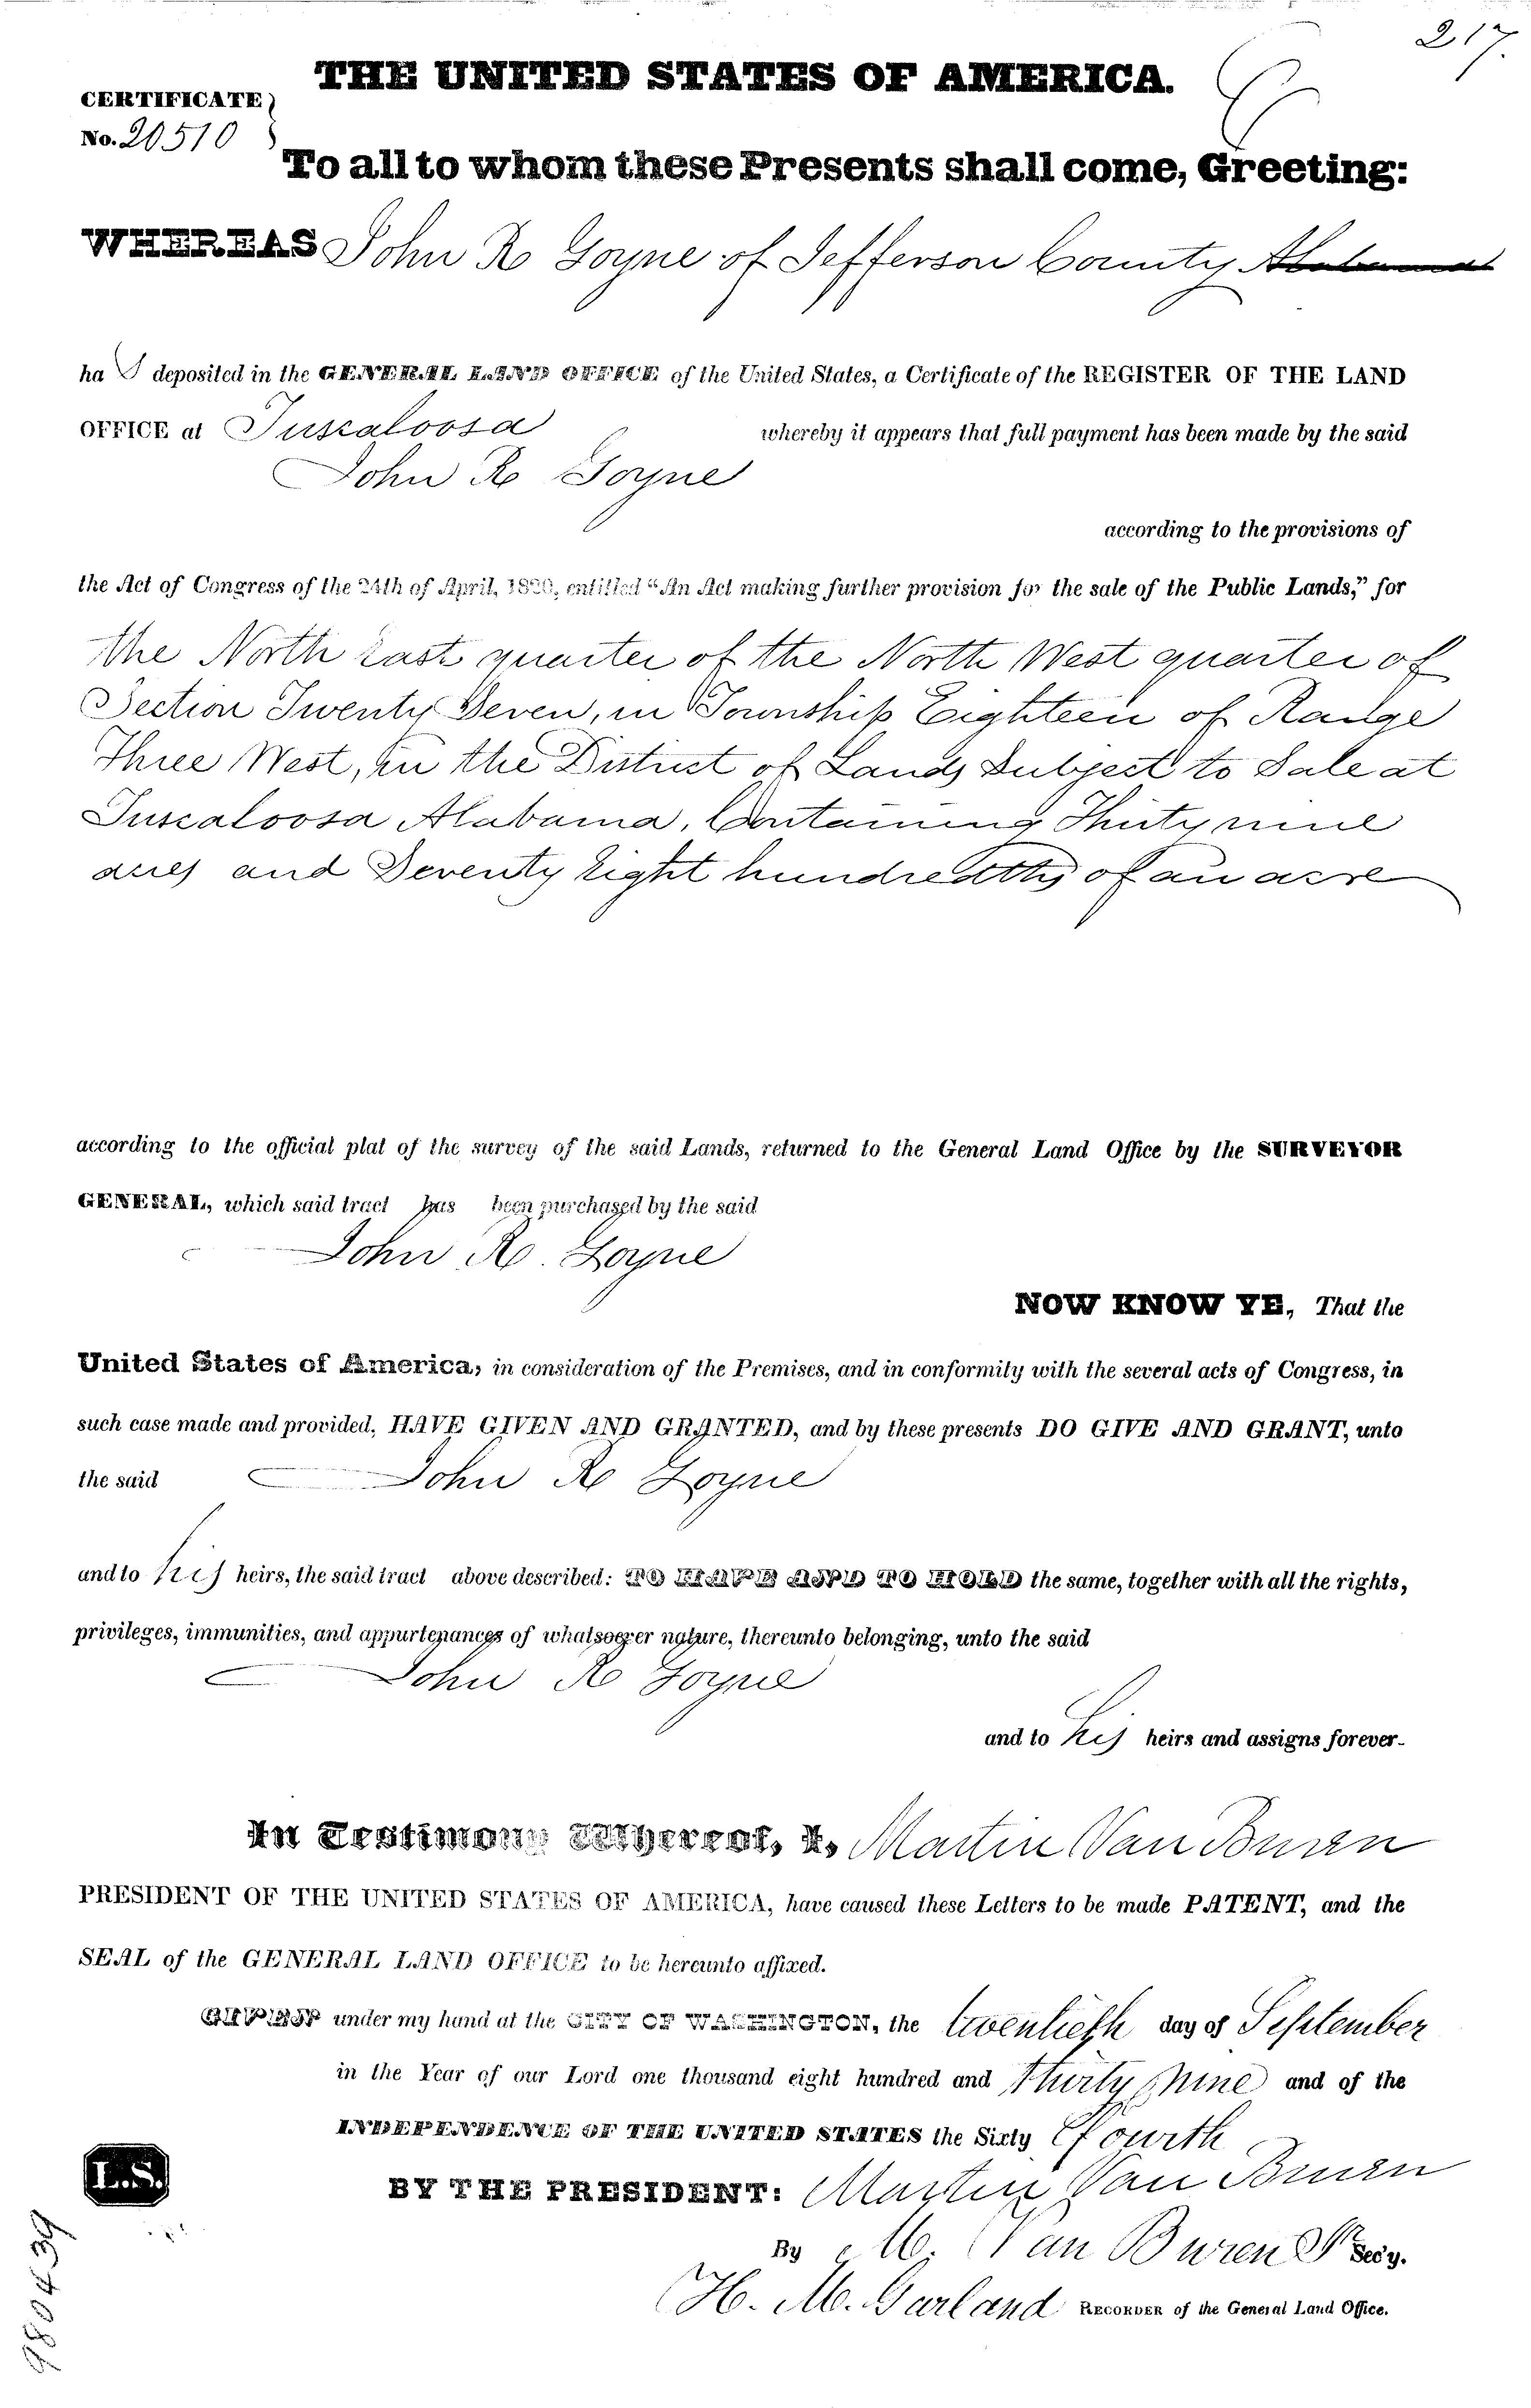 217.
THE UNITED STATES OF AMERICA.
CERTIFICATE
No. 20510
To all to whom these Presents shall come, Greeting:
WHEREAS John R Goyne of Jefferson County Alabama
has deposited in the GENERAL LAND OFFICE of the United States, a Certificate of the REGISTER OF THE LAND
OFFICE at Tuscaloosa whereby it appears that full payment has been made by the said
John R Goyne
according to the provisions of
the Act of Congress of the 24th of April, 1820, entitled "An Act making further provision for the sale of the Public Lands," for
the North East quarter of the North West quarter of
Section Twenty Seven, in Township Eighteen of Range
Three West, in the District of Lands Subject to Sale at
Tuscaloosa Alabama, Containing Thirty nine
acres and Seventy Eight hundredths of an acre
according to the official plat of the survey of the said Lands, returned to the General Land Office by the SURVEYOR
GENERAL, which said tract has been purchased by the said
John R. Goyne
NOW KNOW YE, That the
United States of America, in consideration of the Premises, and in conformity with the several acts of Congress, in
such case made and provided, HAVE GIVEN AND GRANTED, and by these presents DO GIVE AND GRANT, unto
the said John R Goyne
and to his heirs, the said tract above described: TO HAVE AND TO HOLD the same, together with all the rights,
privileges, immunities, and appurtenances of whatsoever nature, thereunto belonging, unto the said
John R Goyne
and to his heirs and assigns forever.
In Testimony Whereof, I, Martin Van Buren
PRESIDENT OF THE UNITED STATES OF AMERICA, have caused these Letters to be made PATENT, and the
SEAL of the GENERAL LAND OFFICE to be hereunto affixed.
GIVEN under my hand at the CITY OF WASHINGTON, the twentieth day of September
in the Year of our Lord one thousand eight hundred and thirty nine and of the
INDEPENDENCE OF THE UNITED STATES the Sixty fourth
L.S.
BY THE PRESIDENT: Martin Van Buren
By M. Van Buren Jr Sec'y.
H. M. Garland RECORDER of the General Land Office.
980439